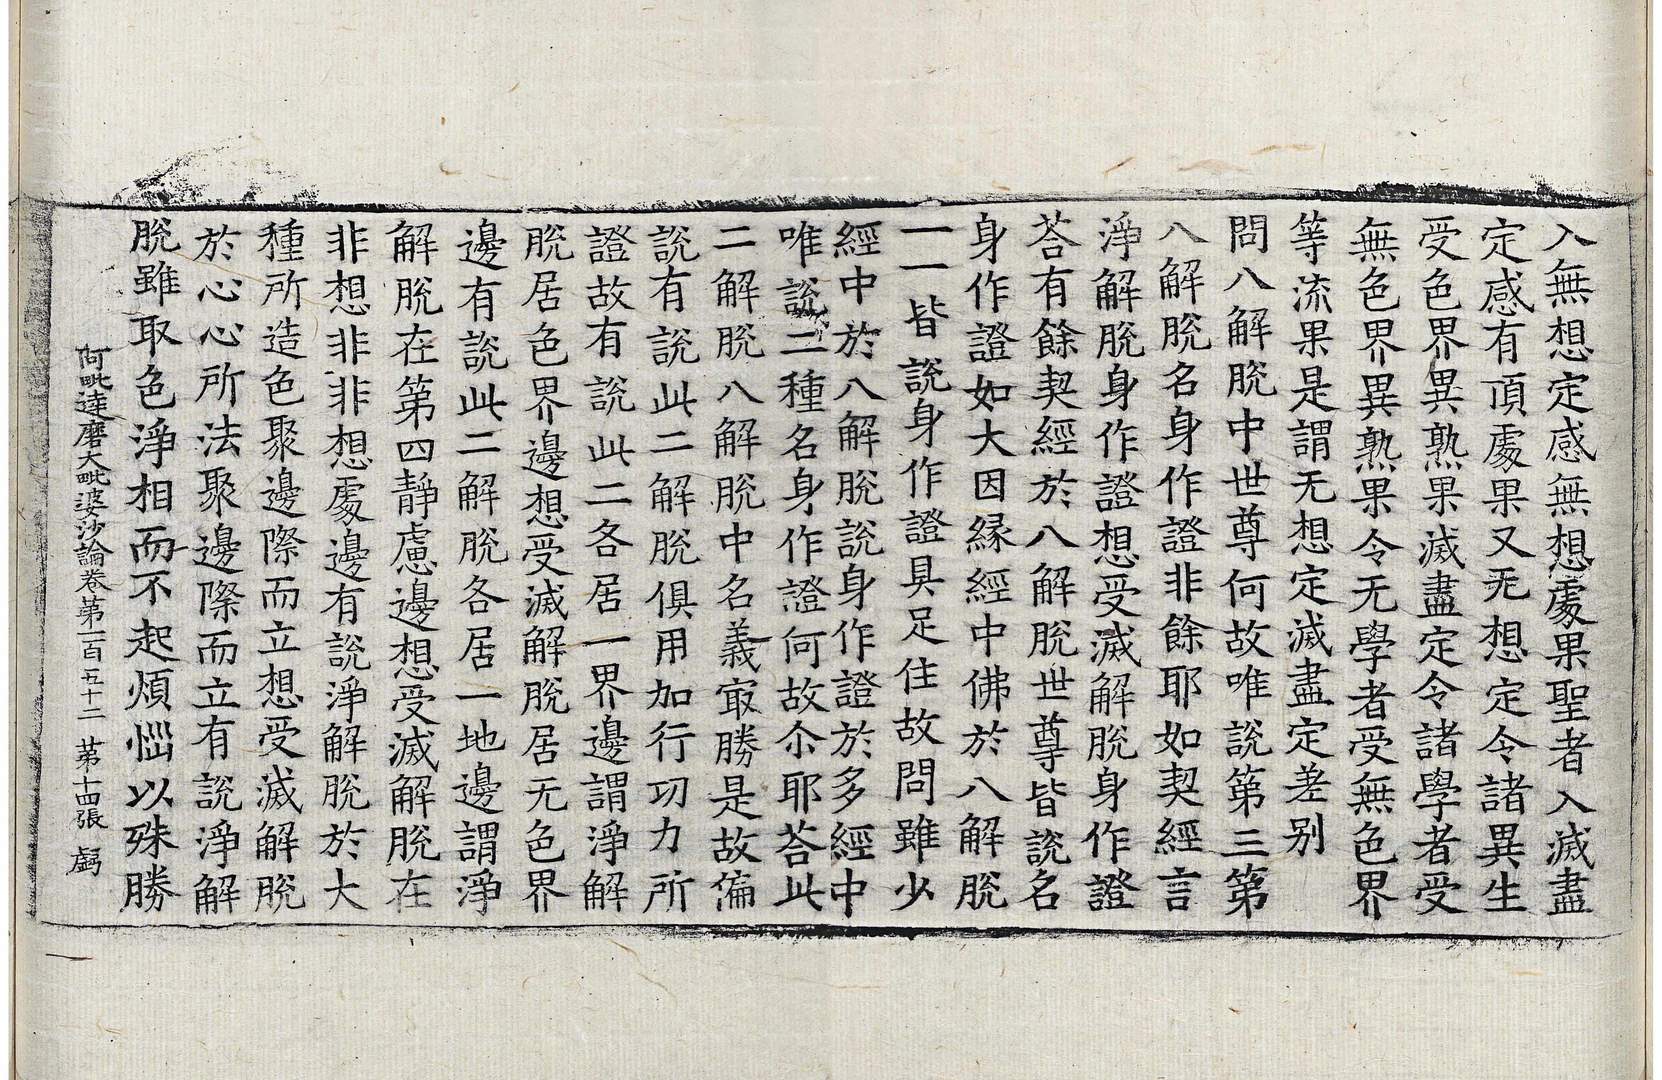 入無想定感無想處果聖者入滅盡
定感有頂處果又无想定令諸異生
受色界異熟果滅盡定令諸學者受
無色界異熟果令无學者受無色界
等流果是謂无想定滅盡定差別
問八解脫中世尊何故唯說第三第
八解脫名身作證非餘耶如契經言
淨解脫身作證想受滅解脫身作證
荅有餘契經於八解脫世尊皆說名
身作證如大因緣經中佛於八解脫
一一皆說身作證具足住故問雖少
經中於八解脫說身作證於多經中
唯說二種名身作證何故尒耶荅此
二解脫八解脫中名義冣勝是故偏
說有說此二解脫俱用加行功力所
證故有說此二各居一界邊謂淨解
脫居色界邊想受滅解脫居无色界
邊有說此二解脫各居一地邊謂淨
解脫在第四靜慮邊想受滅解脫在
非想非非想處邊有說淨解脫於大
種所造色聚邊際而立想受滅解脫
於心心所法聚邊際而立有說淨解
脫雖取色淨相而不起煩惱以殊勝
阿毗達磨大毗婆沙論卷第一百五十二 苐十四張 虧